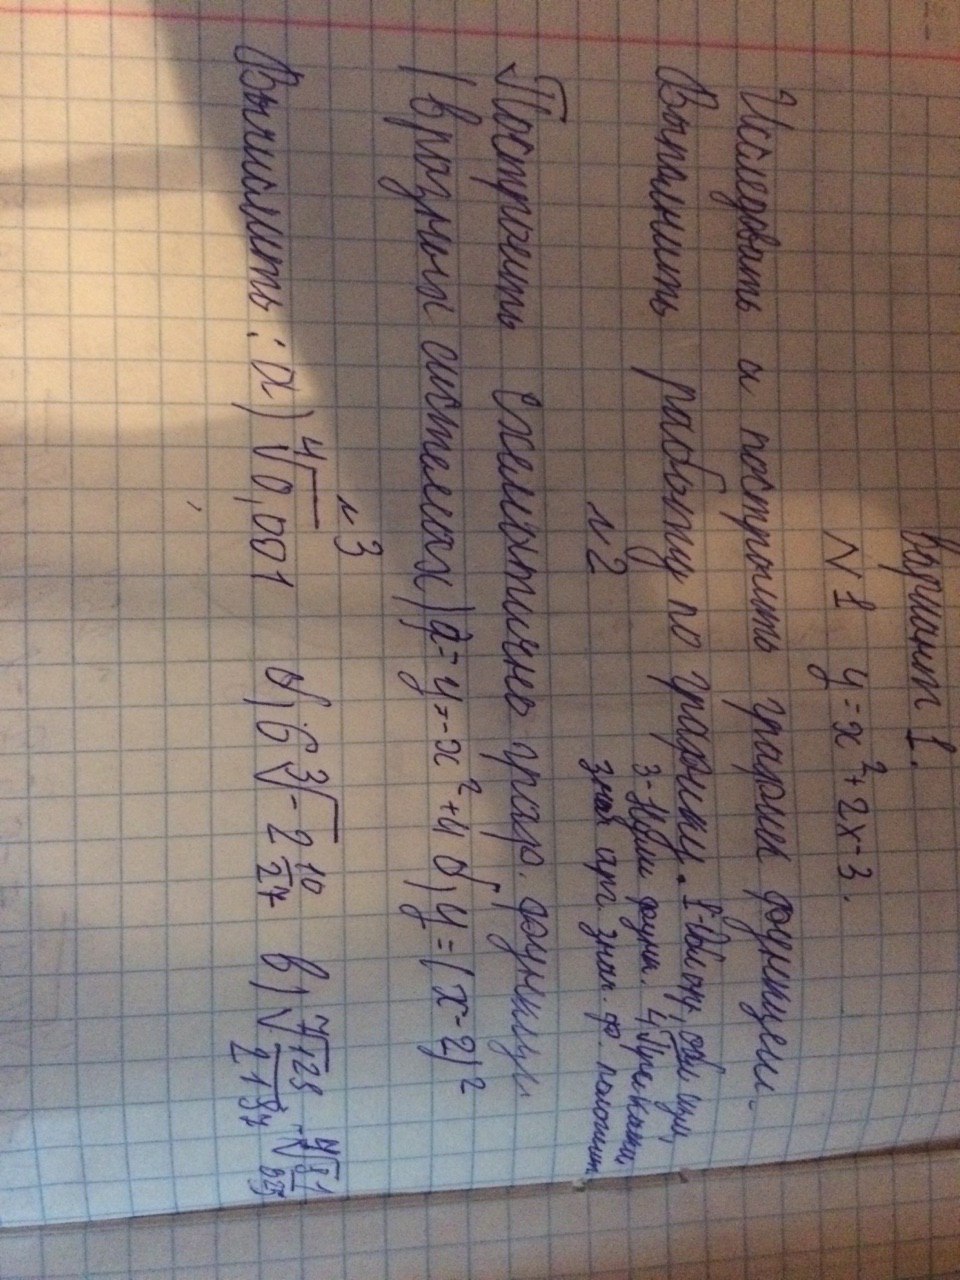 Вариант 1.
N 1 y = x² + 2x - 3.
Исследовать и построить график функции.
Выполнить работу по графику. 1-Обл опр, обл изм,
3-Нули функ. 4, При каких
N 2 знач арг. знач. ф. положит.
Построить схематично граф. функции
(в разных системах) а - y = -x² + 4 б) y = (x - 2)²
N 3
Вычислить: а) ⁴√0,001 б) 6 ³√-2 10/27 в) ⁷√128/2187 - ⁴√1/625